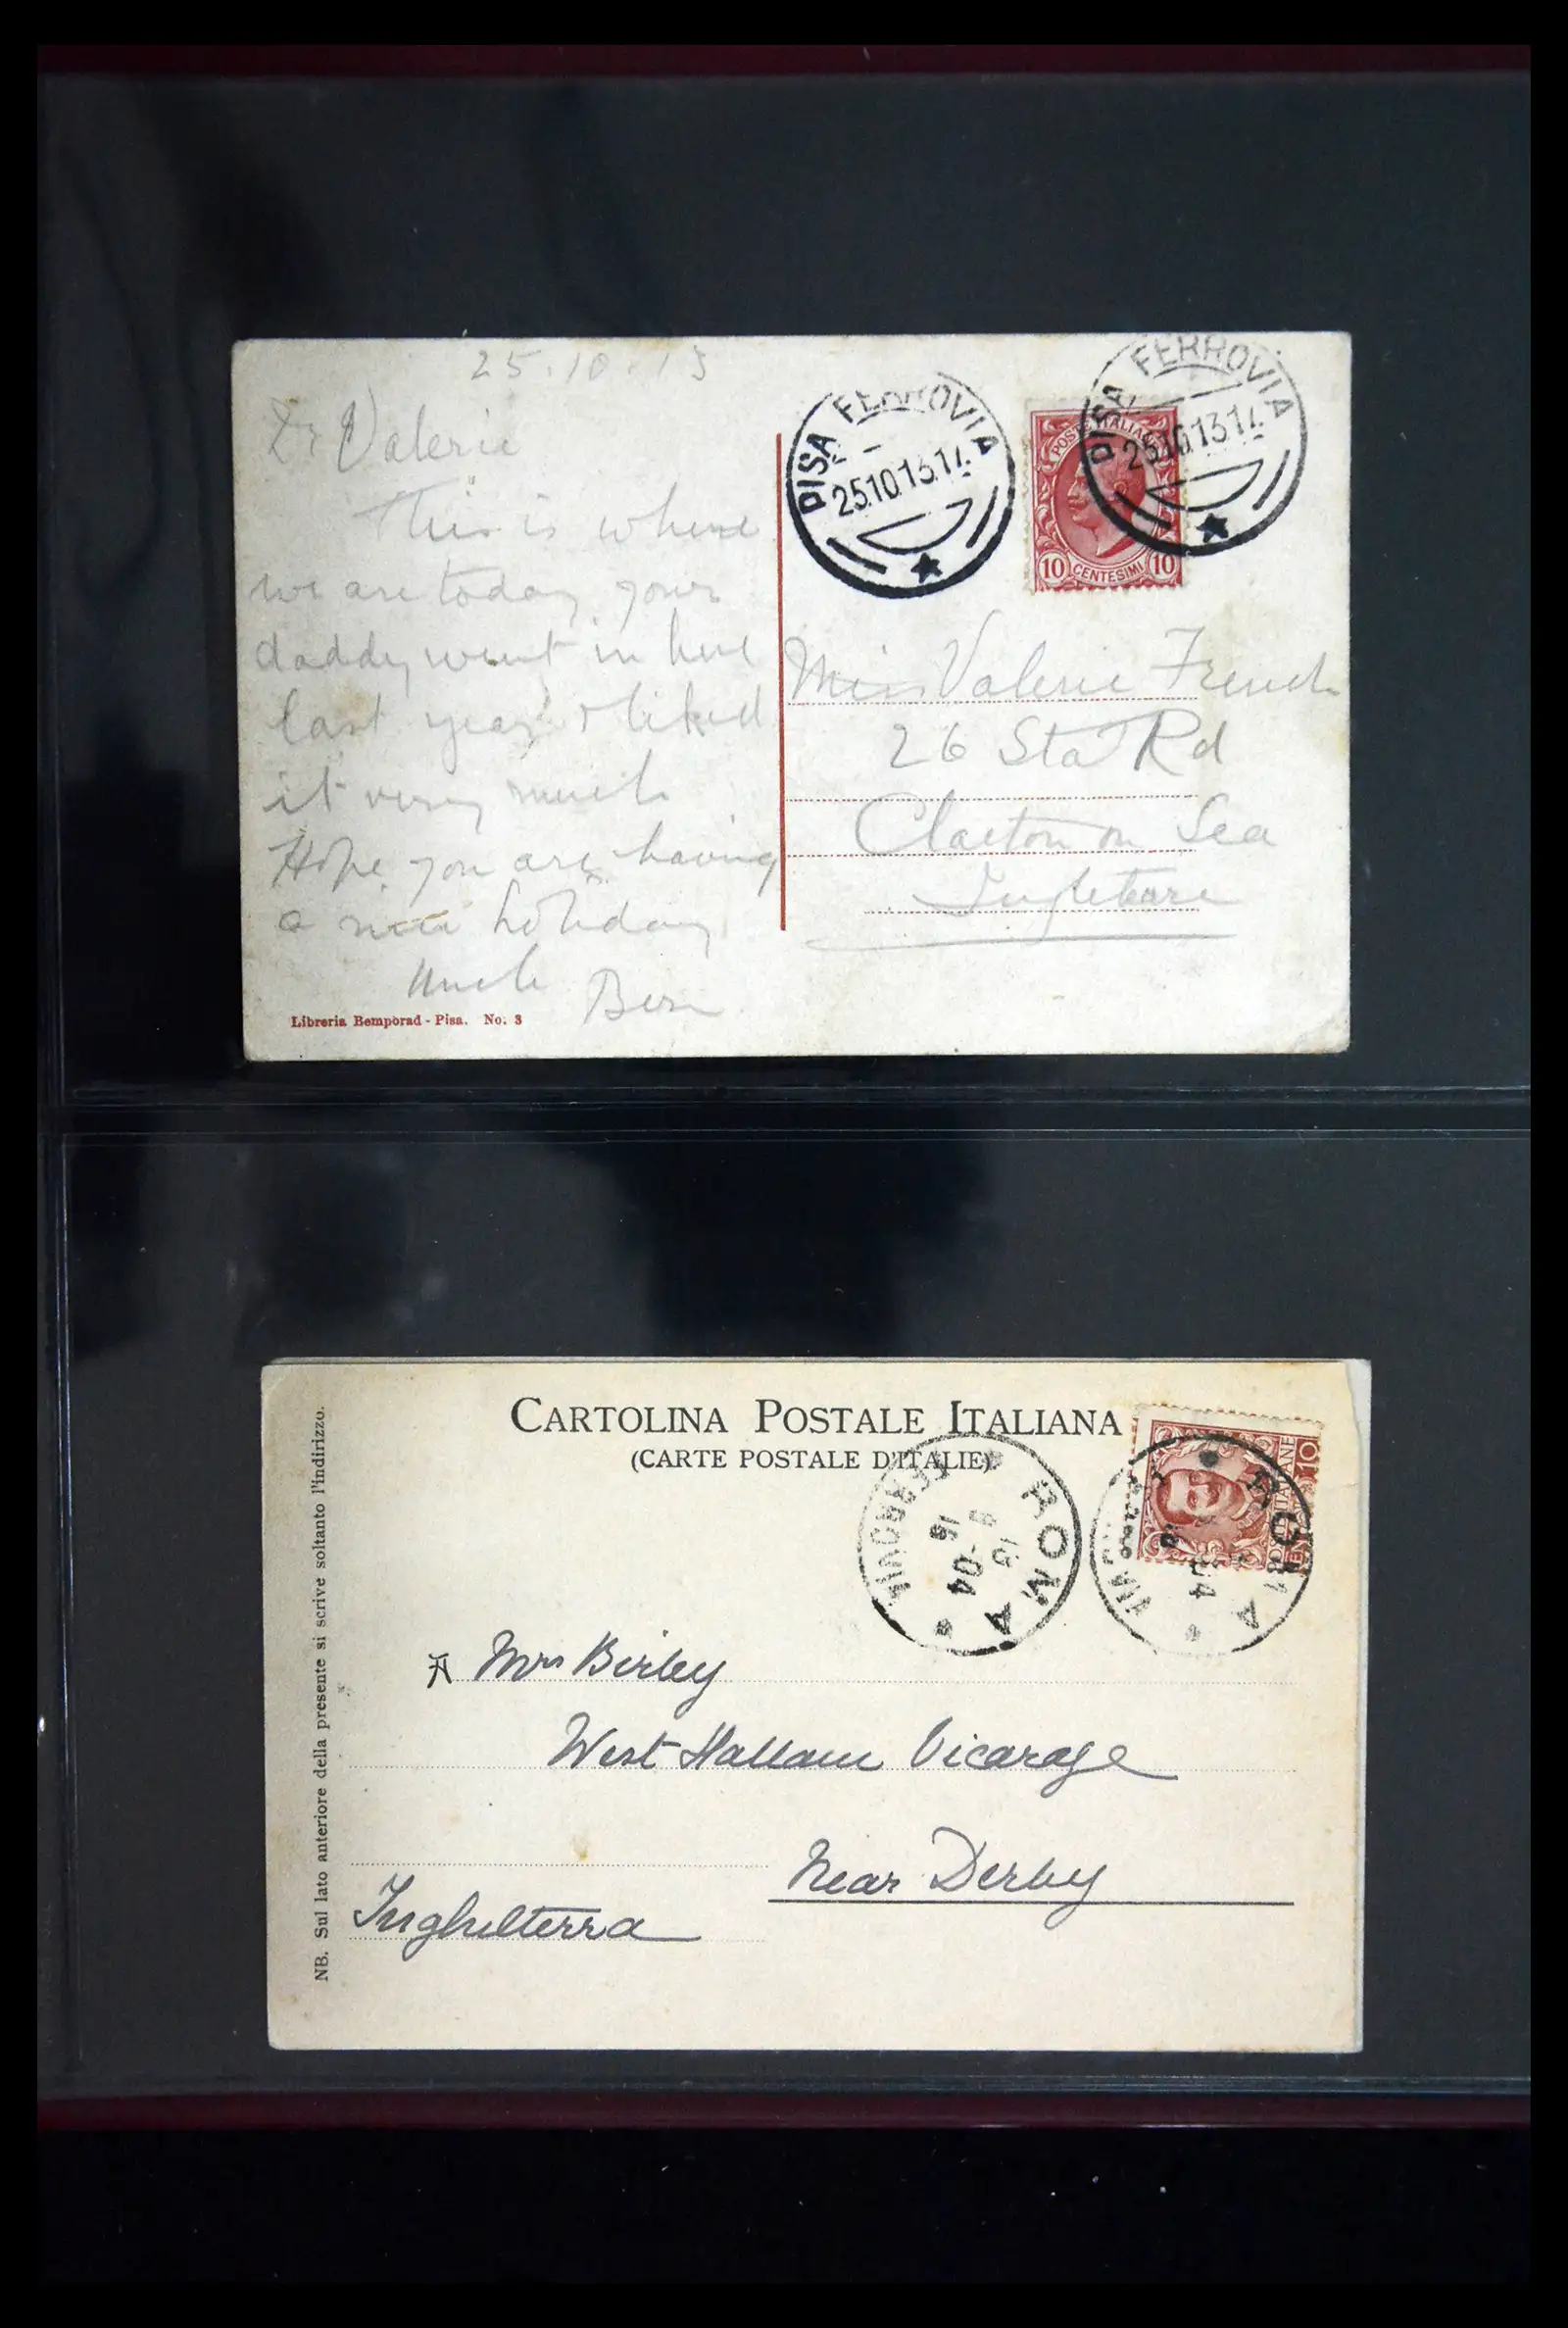 25.10.13
Dr Valerie
This is where
we are today your
daddy went in here
last year & liked
it very much
Hope you are having
a nice holiday
Uncle Bern
Libreria Bemporad - Pisa. No. 3
PISA FERROVIA
25.10.13.17.
PISA FERROVIA
25.10.13.17.
POSTE ITALIANE
10 CENTESIMI 10
Miss Valerie French
26 Sta Rd
Clacton on Sea
CARTOLINA POSTALE ITALIANA
(CARTE POSTALE D'ITALIE)
ROMA
FERROVIA
10 -04
16
ROMA
POSTE ITALIANE
10
Mrs Birley
West Hallam Vicarage
Near Derby
Inghilterra
NB. Sul lato anteriore della presente si scrive soltanto l'indirizzo.